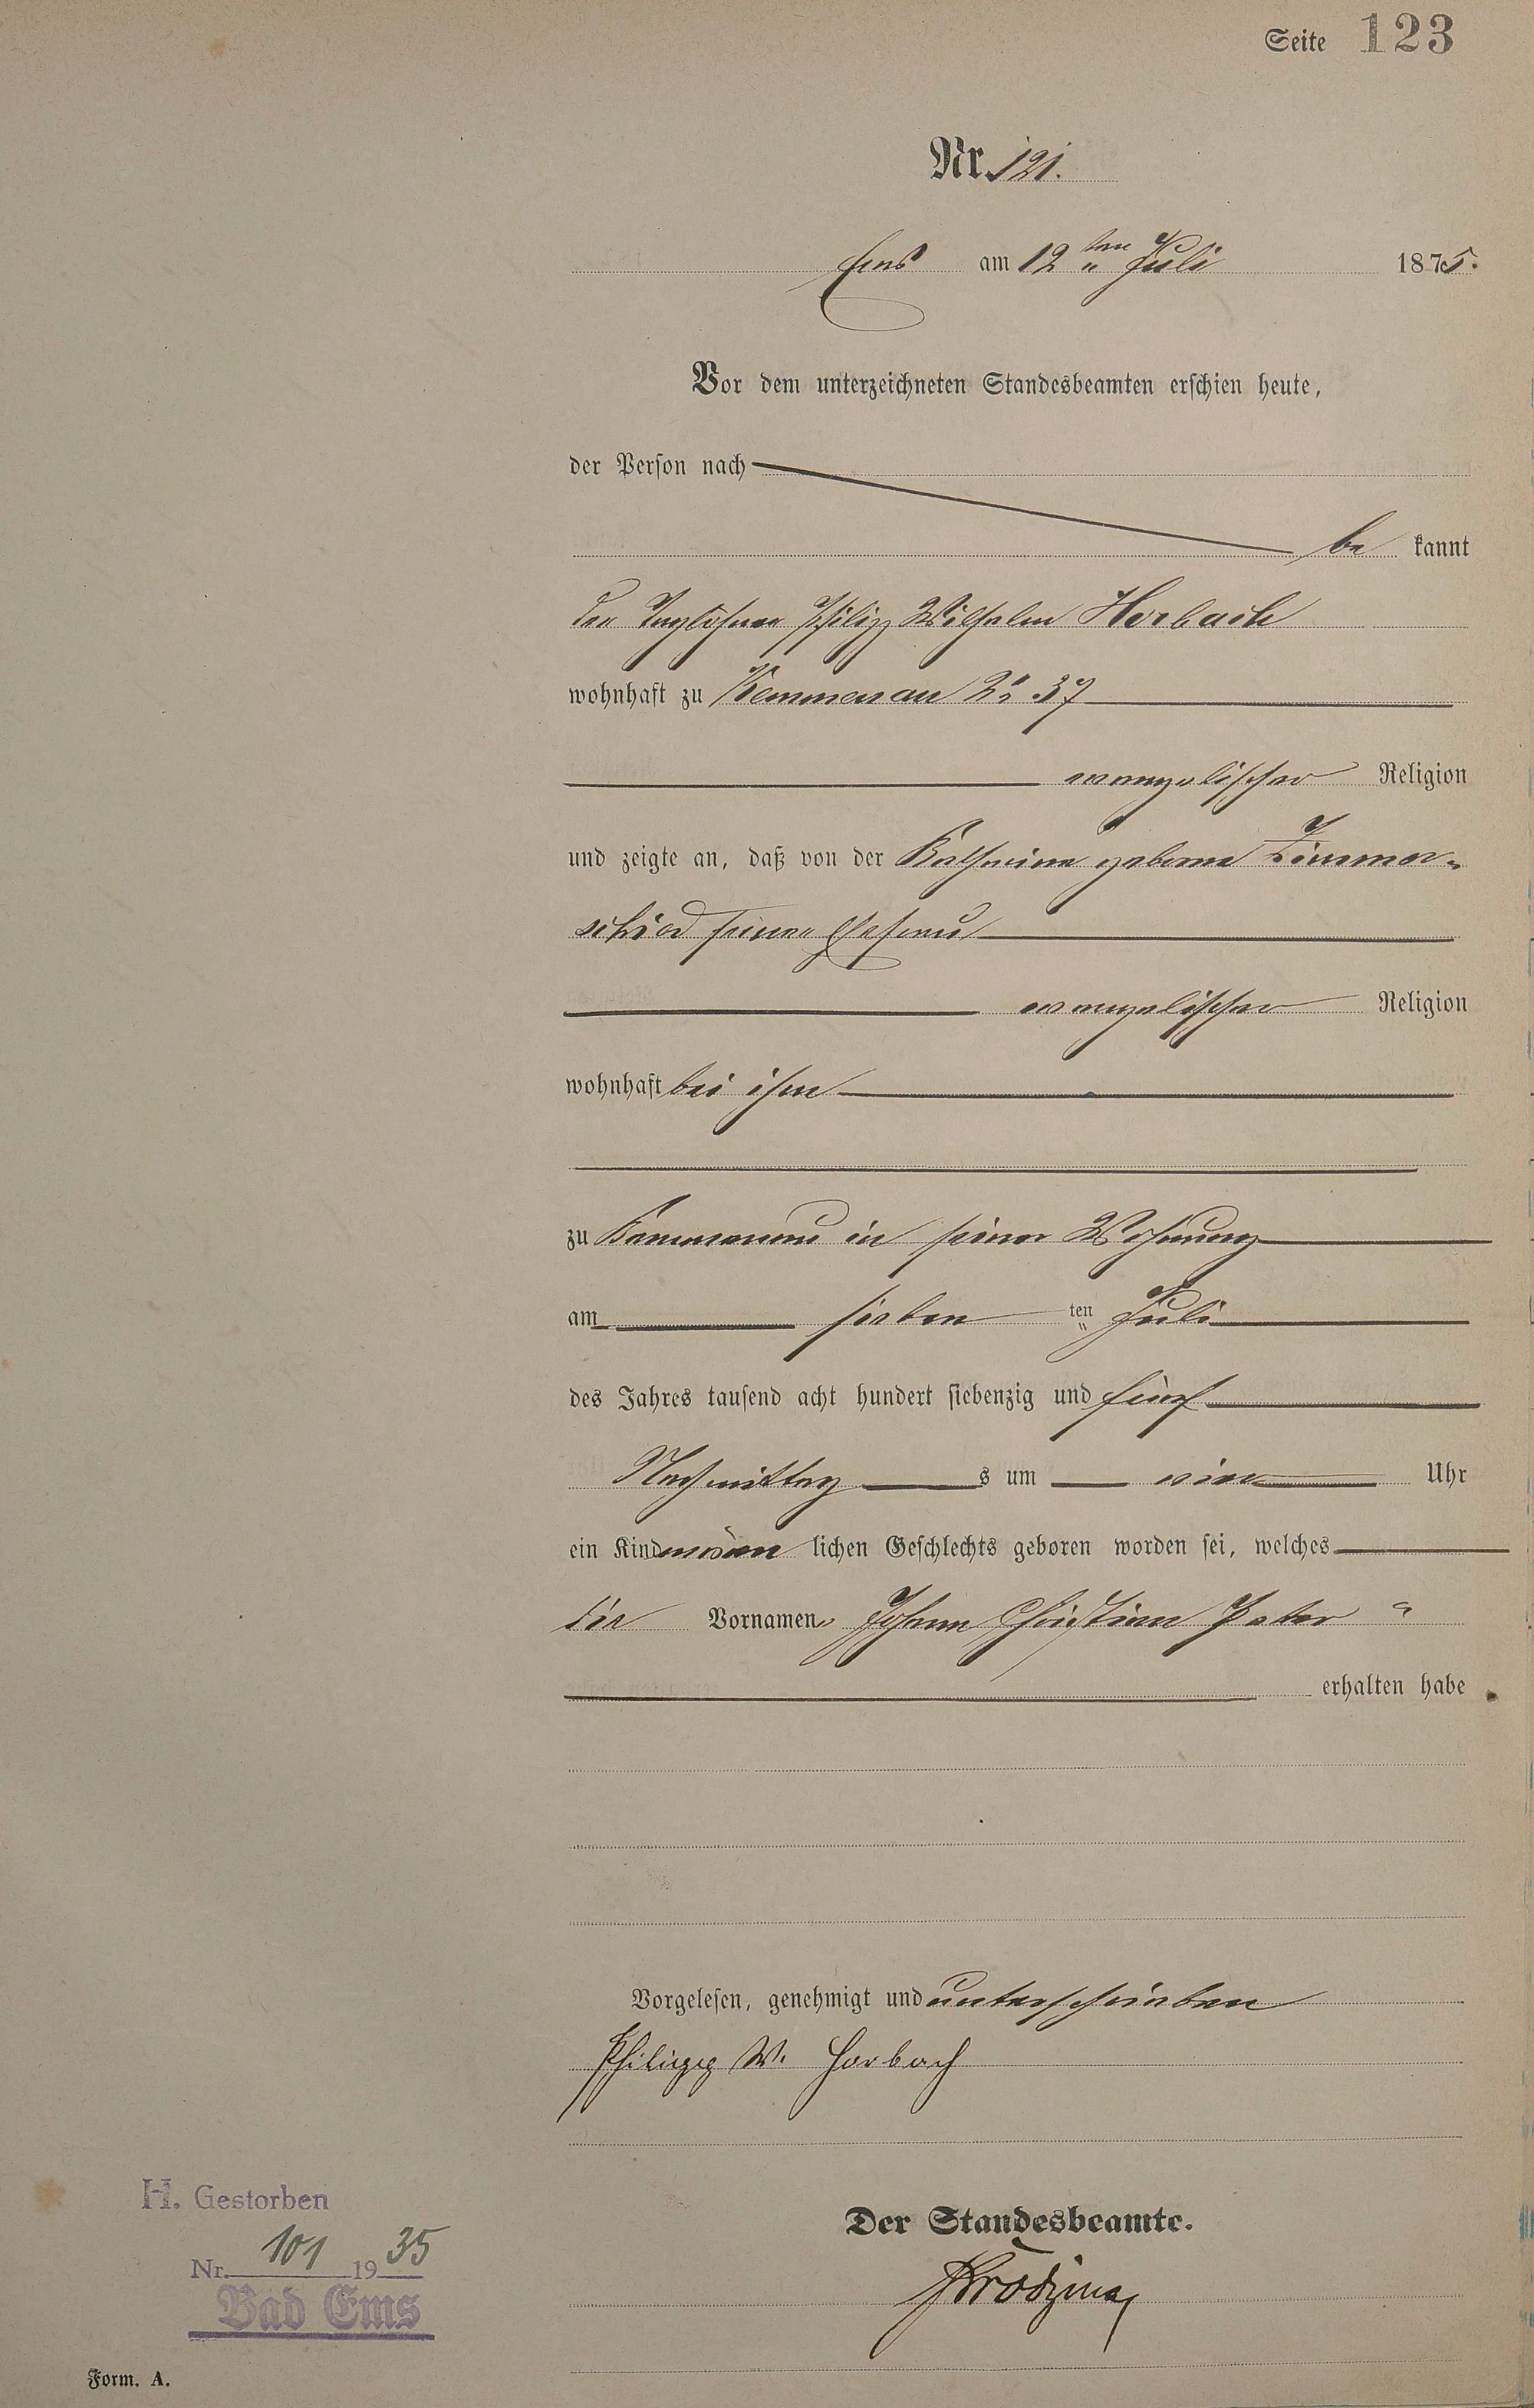 Seite 123
Nr. 121.
Ems am 12ten Juli 1875.
Vor dem unterzeichneten Standesbeamten erschien heute,
der Person nach
be kannt
der Taglöhner Philipp Wilhelm Horbach
wohnhaft zu Kemmenau No 37
evangelischer Religion
und zeigte an, daß von der Katharina geborne Zimmer-
schied seiner Ehefrau
evangelischer Religion
wohnhaft bei ihm
zu Kemmenau in seiner Wohnung
am sieben ten Juli
des Jahres tausend acht hundert siebenzig und fünf
Nachmittag s um vier Uhr
ein Kind männ lichen Geschlechts geboren worden sei, welches
die Vornamen Johann Christian Peter
erhalten habe
Vorgelesen, genehmigt und unterschrieben
Philipp W. Horbach
H. Gestorben
Nr. 101 1935
Bad Ems
Der Standesbeamte.
Form. A.